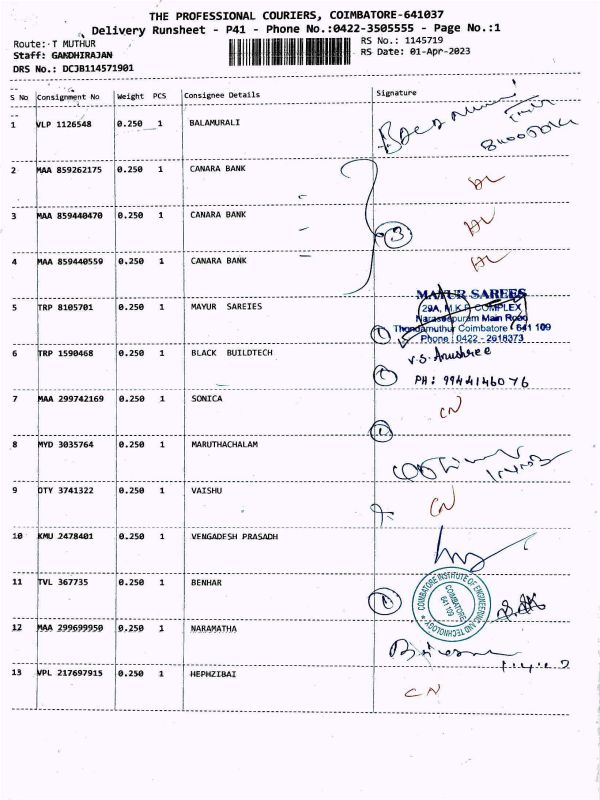 THE PROFESSIONAL COURIERS, COIMBATORE-641037
Delivery Runsheet - P41 - Phone No.:0422-3505555 - Page No.:1
Route: T MUTHUR
RS No.: 1145719
Staff: GANDHIRAJAN
RS Date: 01-Apr-2023
DRS No.: DCJB114571901
S No Consignment No Weight PCS Consignee Details Signature
1 VLP 1126548 0.250 1 BALAMURALI
2 MAA 859262175 0.250 1 CANARA BANK
3 MAA 859440470 0.250 1 CANARA BANK
3
4 MAA 859440559 0.250 1 CANARA BANK
MAYUR SAREES
5 TRP 8105701 0.250 1 MAYUR SAREIES
29A, M.K.P. COMPLEX
Naraseepuram Main Road
Thondamuthur Coimbatore - 641 109
Phone : 0422 - 2618373
6 TRP 1590468 0.250 1 BLACK BUILDTECH
V.S. Anushree
PH: 9944146076
7 MAA 299742169 0.250 1 SONICA
CN
8 MYD 3035764 0.250 1 MARUTHACHALAM
9 OTY 3741322 0.250 1 VAISHU
CN
10 KMU 2478401 0.250 1 VENGADESH PRASADH
11 TVL 367735 0.250 1 BENHAR
COIMBATORE INSTITUTE OF ENGINEERING AND TECHNOLOGY
COIMBATORE
641 109
12 MAA 299699950 0.250 1 NARAMATHA
13 VPL 217697915 0.250 1 HEPHZIBAI
CN